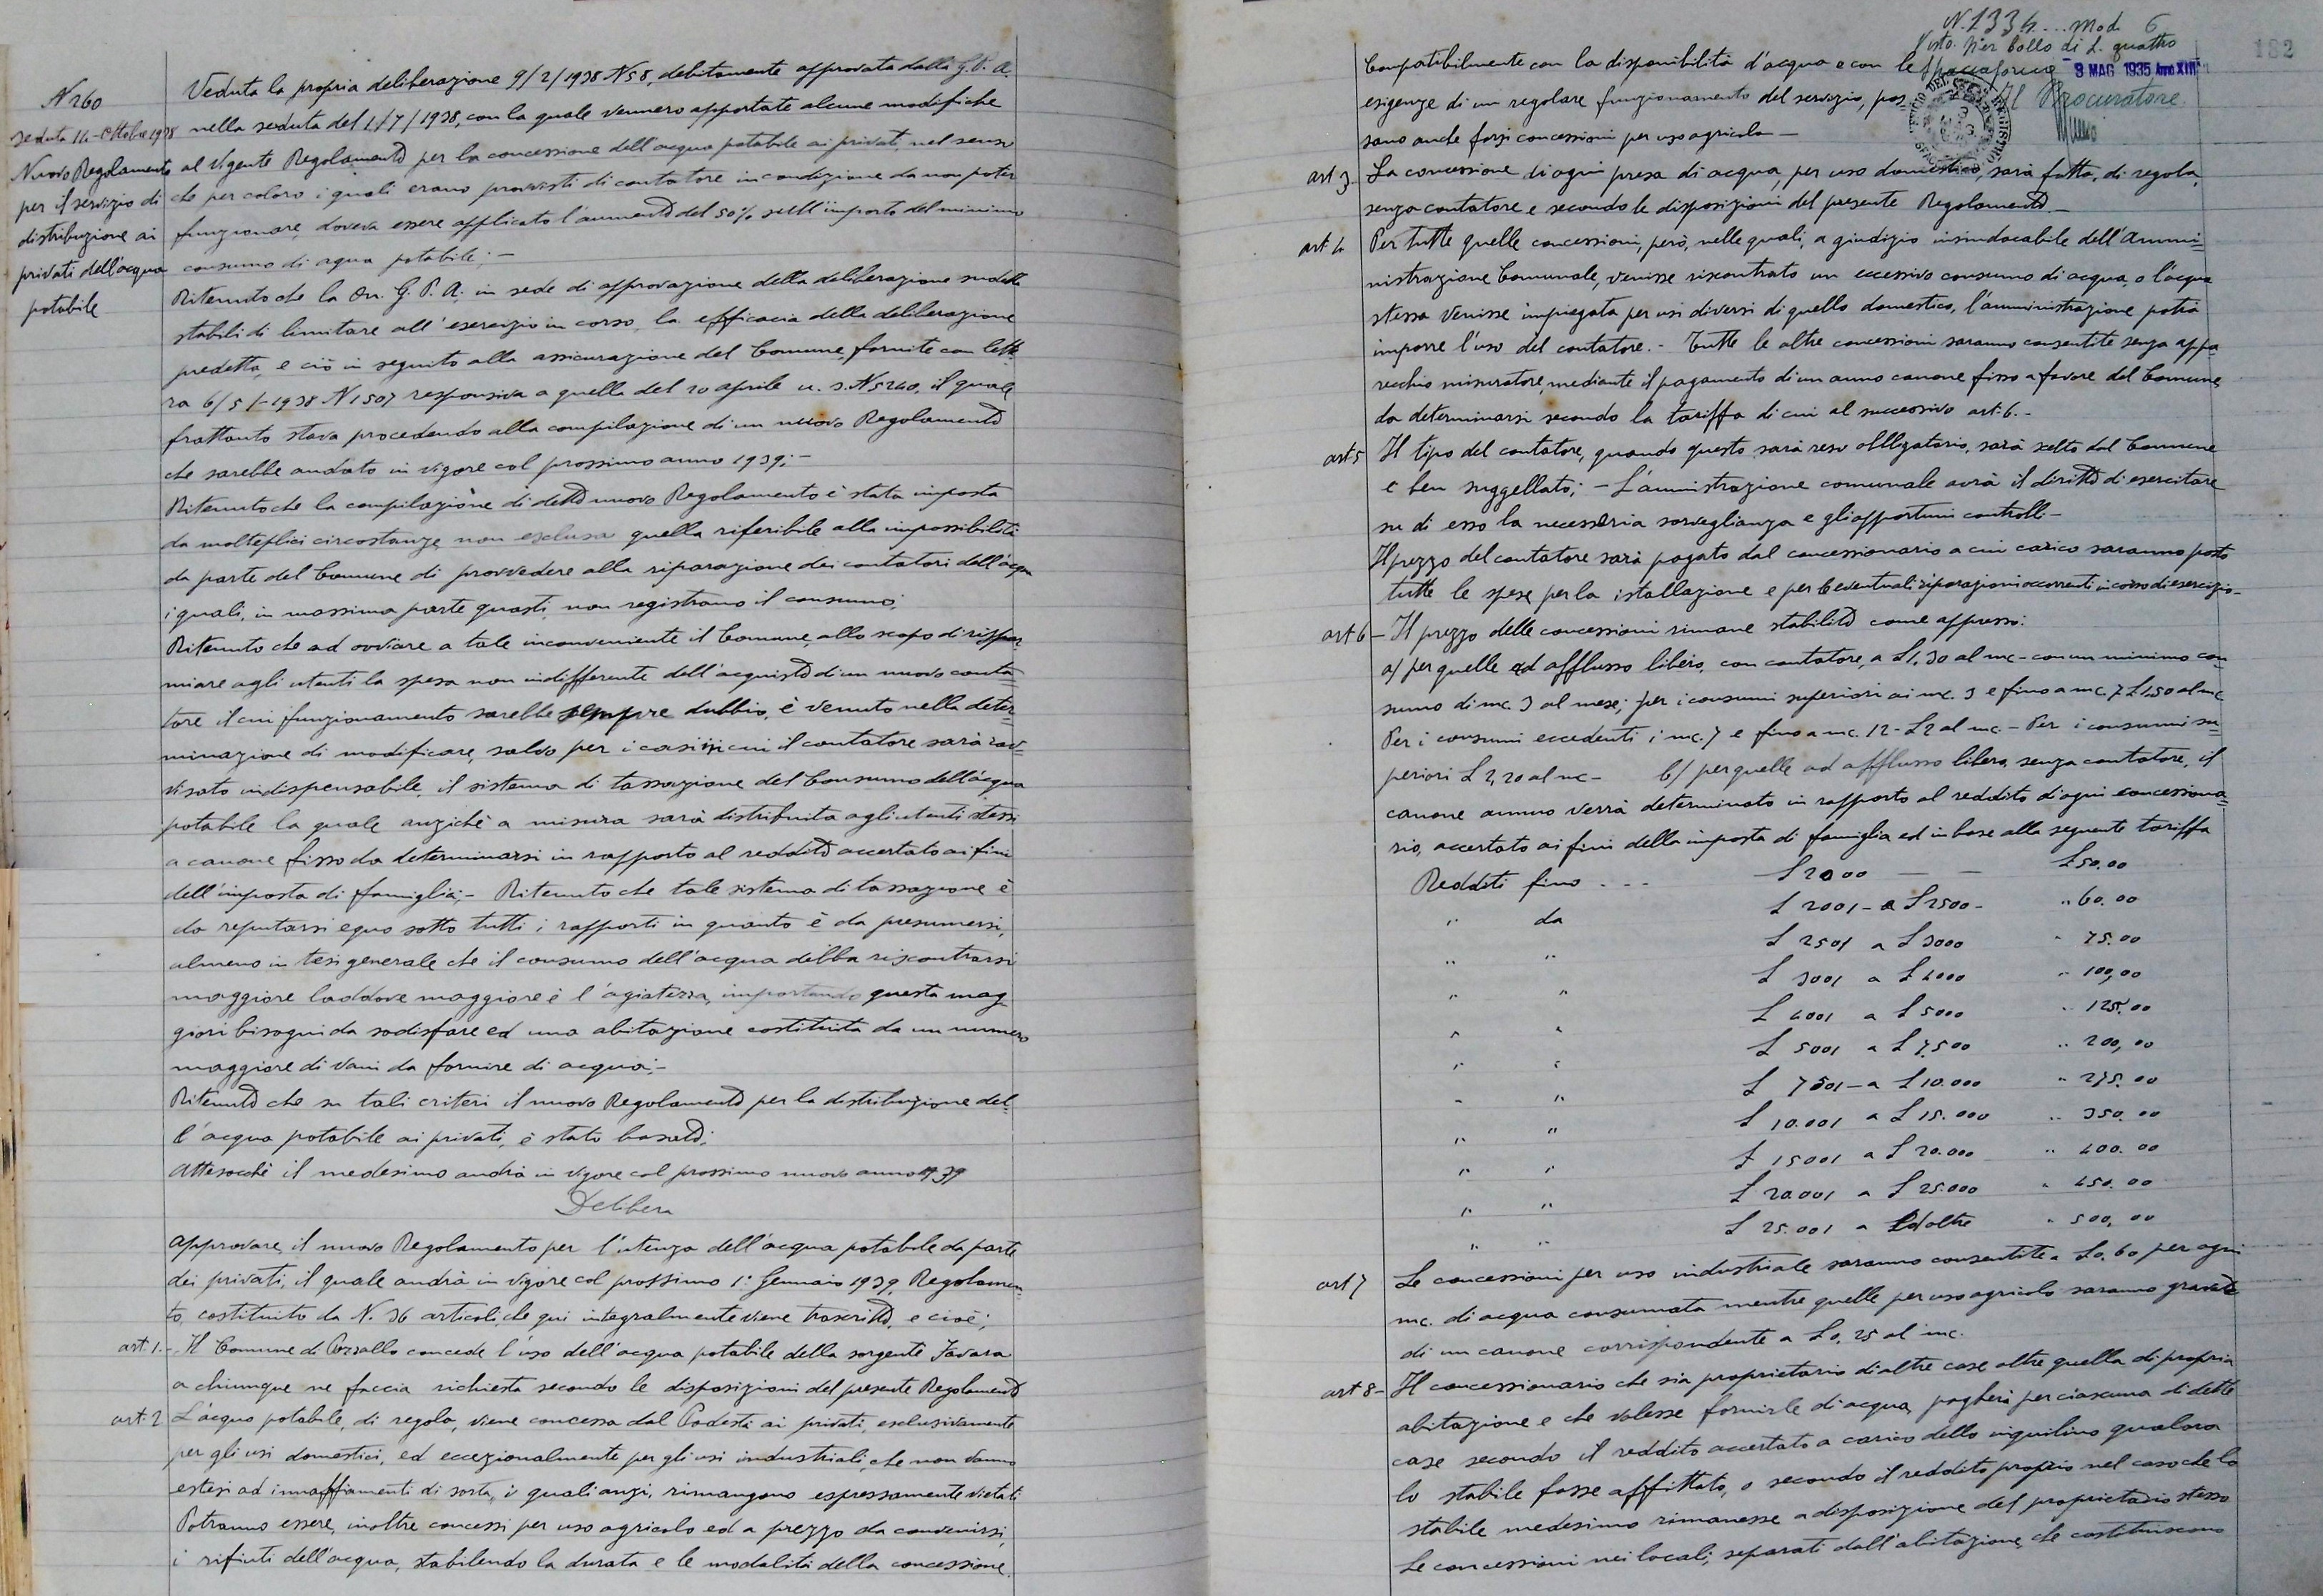 N 260
seduta 14-Ottobre 1938
Nuovo Regolamento
per il servizio di
distribuzione ai
privati dell'acqua
potabile
Veduta la propria deliberazione 9/2/1938 N58, debitamente approvata dalla G.P.A.
nella seduta del 1/7/1938, con la quale vennero apportate alcune modifiche
al vigente Regolamento per la concessione dell'acqua potabile ai privati, nel senso
che per coloro i quali erano provvisti di contatore in condizione da non poter
funzionare, doveva essere applicato l'aumento del 50% sull'importo del minimo
consumo di aqua potabile; -
Ritenuto che la On. G. P. A. in sede di approvazione della deliberazione sudetta
stabilì di limitare all'esercizio in corso, la efficacia della deliberazione
predetta, e ciò in seguito alla assicurazione del Comune fornite con lette
ra 6/5/-1938 N1507 responsiva a quella del 20 aprile u. s. N5240, il quale
frattanto stava procedendo alla compilazione di un nuovo Regolamento
che sarebbe andato in vigore col prossimo anno 1939; -
Ritenuto che la compilazione di detto nuovo Regolamento è stata imposta
da molteplici circostanze non esclusa quella riferibile alla impossibilità
da parte del Comune di provvedere alla riparazione dei contatori dell'acqua
i quali, in massima parte guasti, non registrano il consumo;
Ritenuto che ad ovviare a tale inconveniente il Comune, allo scopo di rispar
miare agli utenti la spesa non indifferente dell'acquisto di un nuovo conta=
tore il cui funzionamento sarebbe sempre dubbio, è venuto nella deter=
minazione di modificare, salvo per i casi in cui il contatore sarà rav=
visato indispensabile, il sistema di tassazione del Consumo dell'acqua
potabile la quale anzichè a misura sarà distribuita agli utenti stessi
a canone fisso da determinarsi in rapporto al reddito accertato ai fini
dell'imposta di famiglia; - Ritenuto che tale sistema di tassazione è
da reputarsi equo sotto tutti i rapporti in quanto è da presumersi,
almeno in tesi generale che il consumo dell'acqua debba riscontrarsi
maggiore laddove maggiore è l'agiatezza, importando questa mag
giori bisogni da sodisfare ed una abitazione costituita da un numero
maggiore di vani da fornire di acqua; -
Ritenuto che su tali criteri il nuovo Regolamento per la distribuzione del=
l'acqua potabile ai privati, è stato basato;
Attesocchè il medesimo andrà in vigore col prossimo nuovo anno 1939
Delibera
approvare, il nuovo Regolamento per l'utenza dell'acqua potabile da parte
dei privati, il quale andrà in vigore col prossimo 1° Gennaio 1939, Regolamen=
to, costituito da N. 36 articoli, che qui integralmente viene trascritto, e cioè;
art. 1.- Il Comune di Pozzallo concede l'uso dell'acqua potabile della sorgente Favara
a chiunque ne faccia richiesta secondo le disposizioni del presente Regolamento
art. 2 L'acqua potabile, di regola, viene concessa dal Podestà ai privati, esclusivamente
per gli usi domestici, ed eccezionalmente per gli usi industriali, che non vanno
estesi ad innaffiamenti di sorta, i quali anzi, rimangono espressamente vietati
Potranno essere, inoltre concessi per uso agricolo ed a prezzo da convenirsi,
i rifiuti dell'acqua, stabilendo la durata e le modalità della concessione.
N. 1334 .... Mod. 6
Visto per bollo di L. quattro
182
Spaccaforno - 9 MAG 1935 Anno XIII
Il Procuratore
Compatibilmente con la disponibilità d'acqua e con le
esigenze di un regolare funzionamento del servizio, pos
sono anche farsi concessioni per uso agricolo -
art 3- La concessione di ogni presa di acqua, per uso domestico, sarà fatta, di regola,
senza contatore e secondo le disposizioni del presente Regolamento. -
art. 4 Per tutte quelle concessioni, però, nelle quali, a giudizio insindacabile dell'Ammi=
nistrazione Comunale, venisse riscontrato un eccessivo consumo di acqua, o l'acqua
stessa venisse impiegata per usi diversi di quello domestico, l'amministrazione potrà
imporre l'uso del contatore. - Tutte le altre concessioni saranno consentite senza appa=
recchio misuratore, mediante il pagamento di un anno canone fisso a favore del Comune,
da determinarsi secondo la tariffa di cui al successivo art. 6. -
art 5 Il tipo del contatore, quando questo sarà reso obbligatorio, sarà scelto dal Comune
e ben suggellato; - L'amministrazione comunale avrà il diritto di esercitare
su di esso la necessaria sorveglianza e gli opportuni controlli -
Il prezzo del contatore sarà pagato dal concessionario a cui carico saranno poste
tutte le spese per la istallazione e per le eventuali riparazioni occorrenti in corso di esercizio -
art 6 - Il prezzo delle concessioni rimane stabilito come appresso:
a) per quelle ad afflusso libero, con contatore, a L 1,30 al mc - con un minimo con
sumo di mc. 3 al mese; per i consumi superiori ai mc. 3 e fino a mc. 7 L 1,50 al mc
Per i consumi eccedenti i mc. 7 e fino a mc. 12 - L 2 al mc. - Per i consumi su=
periori L 2,20 al mc - b) per quelle ad afflusso libero, senza contatore, il
canone annuo verrà determinato in rapporto al reddito di ogni concessiona=
rio, accertato ai fini della imposta di famiglia ed in base alla seguente tariffa
Redditi fino . - - L 2000 — — L 50.00
" da L 2001 - a L 2500 - " 60.00
" " L 2501 a L 3000 " 75.00
" " L 3001 a L 4000 " 100,00
" " L 4001 a L 5000 " 125.00
" " L 5001 a L 7.500 " 200,00
" " L 7501 - a L 10.000 " 275.00
" " L 10.001 a L 15.000 " 350.00
" " L 15001 a L 20.000 " 400.00
" " L 20.001 a L 25.000 " 450.00
" " L 25.001 a ed oltre " 500,00
art 7 Le concessioni per uso industriale saranno consentite a L 0.60 per ogni
mc. di acqua consumata mentre quelle per uso agricolo saranno gravate
di un canone corrispondente a L 0,25 al mc.
art 8- Il concessionario che sia proprietario di altre case oltre quella di propria
abitazione e che volesse fornirle di acqua, pagherà per ciascuna di dette
case secondo il reddito accertato a carico dello inquilino qualora
lo stabile fosse affittato, o secondo il reddito proprio nel caso che lo
stabile medesimo rimanesse a disposizione del proprietario stesso
Le concessioni nei locali, separati dall'abitazione, che costituiscono